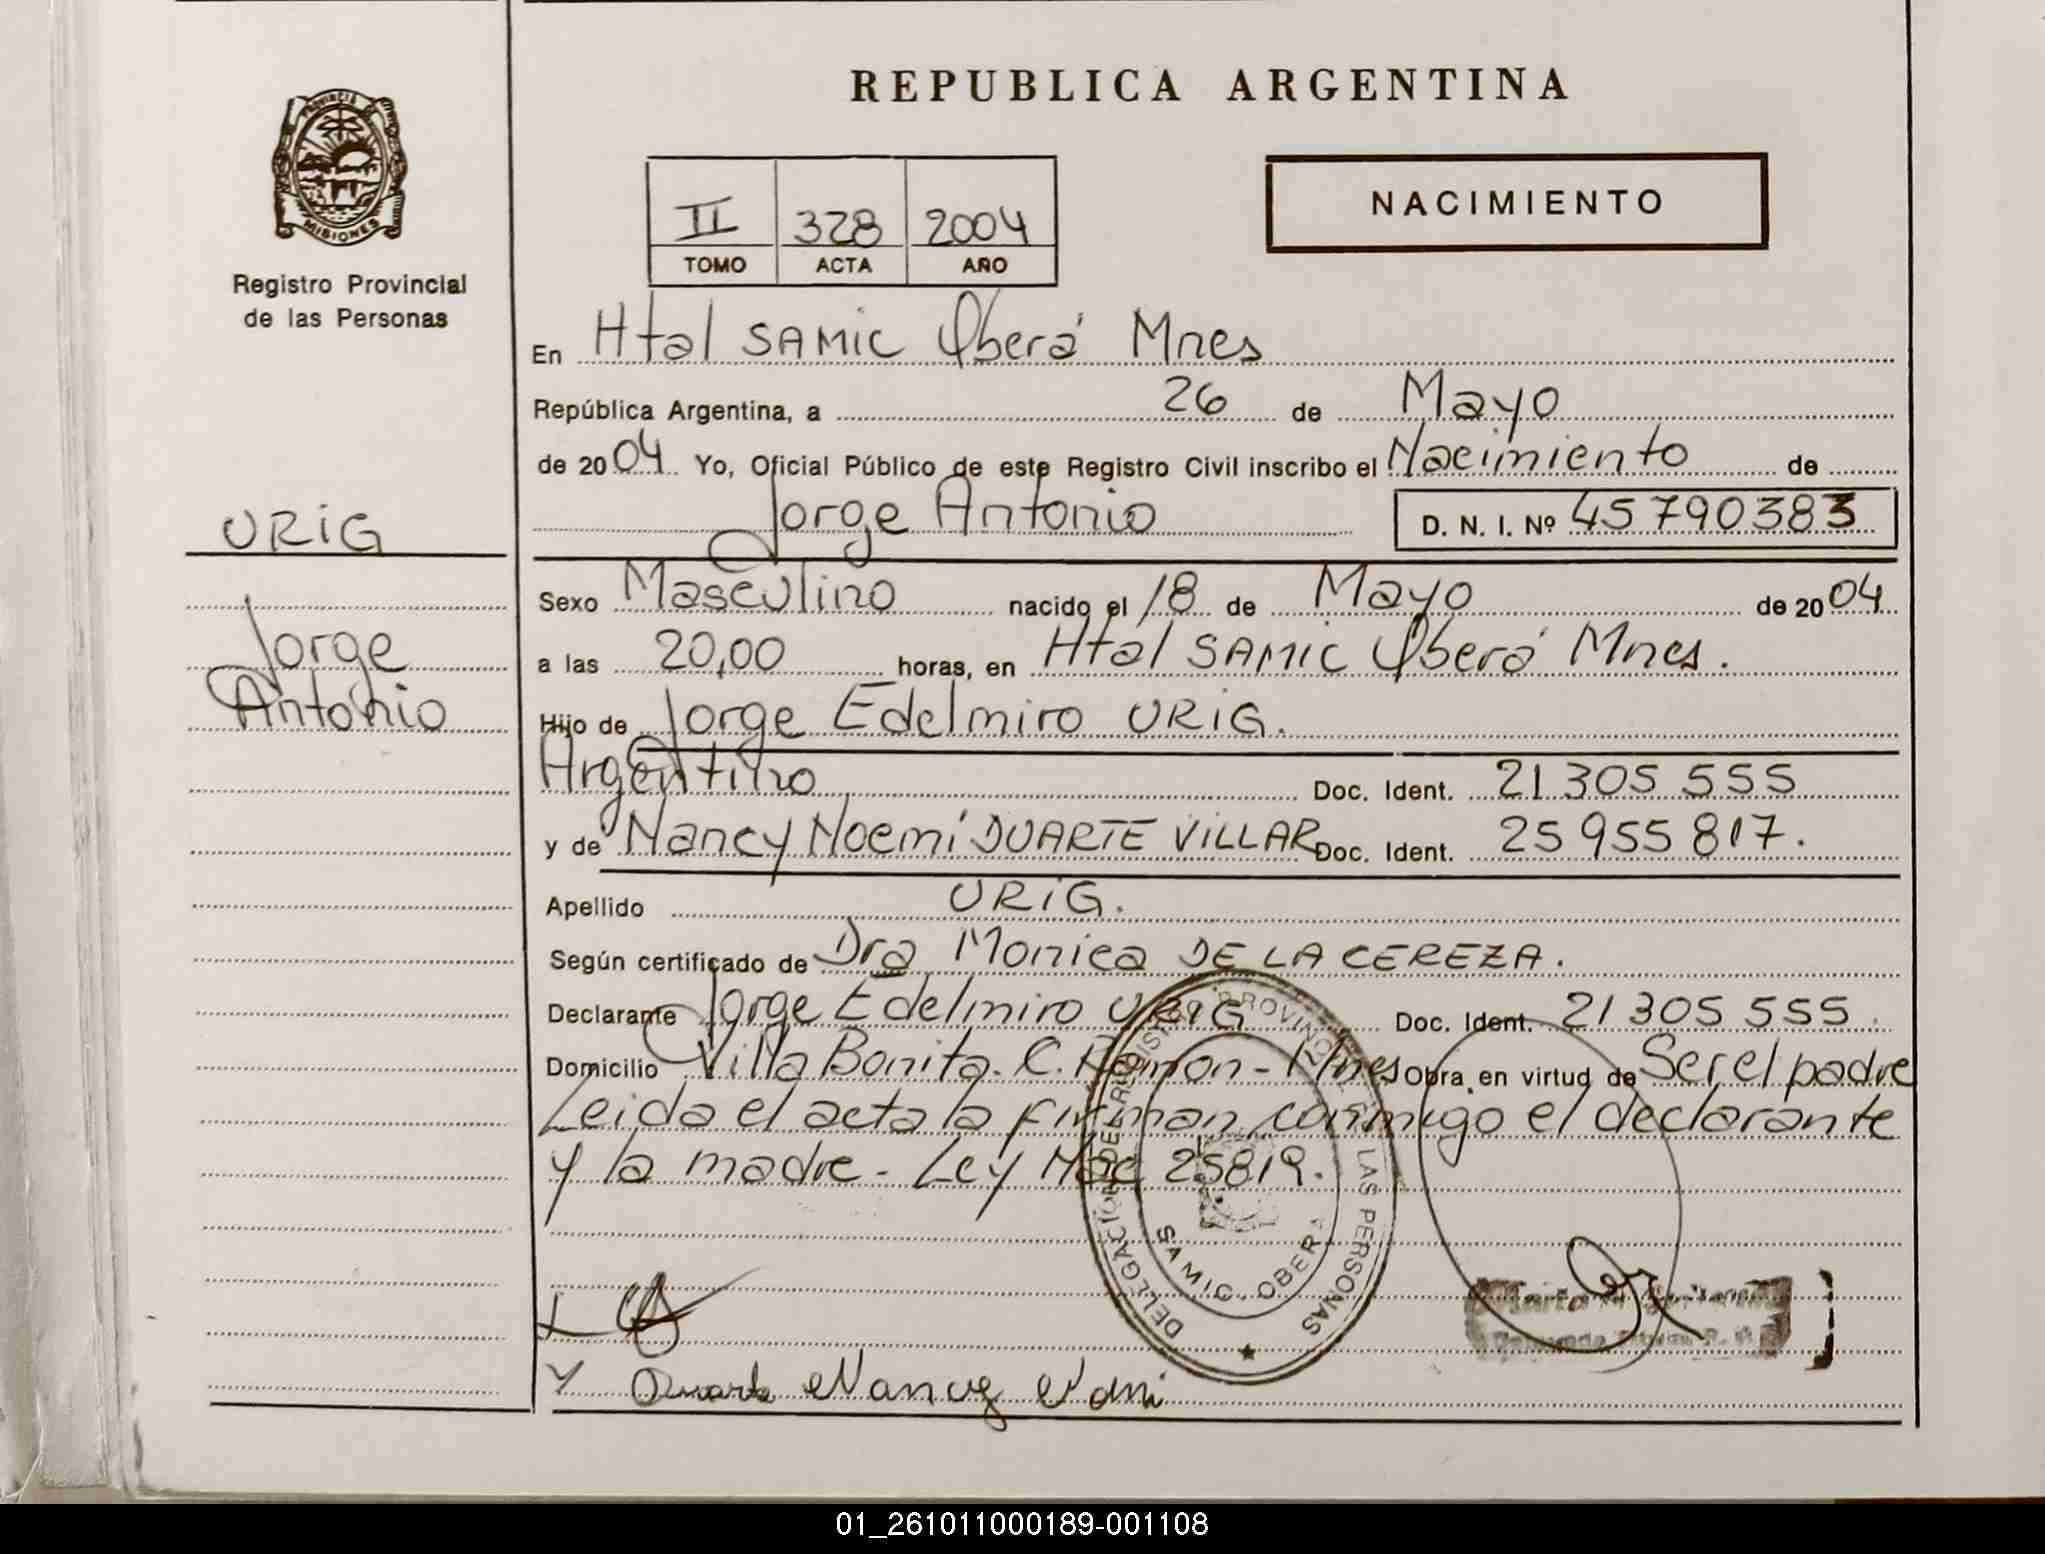 PROVINCIA
MISIONES
Registro Provincial
de las Personas
URiG
Jorge
Antonio
REPUBLICA ARGENTINA
II 328 2004
TOMO ACTA AÑO
NACIMIENTO
En Htal SAMIC Oberá Mnes
República Argentina, a 26 de Mayo
de 2004 Yo, Oficial Público de este Registro Civil inscribo el Nacimiento de
Jorge Antonio D. N. I. Nº 45790383
Sexo Masculino nacido el 18 de Mayo de 2004
a las 20,00 horas, en Htal SAMIC Oberá Mnes.
Hijo de Jorge Edelmiro URiG.
Argentino Doc. Ident. 21 305 555
y de Nancy Noemí DUARTE VILLAR Doc. Ident. 25 955 817.
Apellido URiG.
Según certificado de Dra Monica DE LA CEREZA.
Declarante Jorge Edelmiro URiG Doc. Ident. 21 305 555.
Domicilio Villa Bonita. C. Ramon - Mnes Obra en virtud de Ser el padre
Leida el acta la firman conmigo el declarante
y la madre - Ley Nac 25819.
DELEGACION DEL REGISTRO PROVINCIAL DE LAS PERSONAS
SAMIC OBERA
Duarte Nancy
01_261011000189-001108